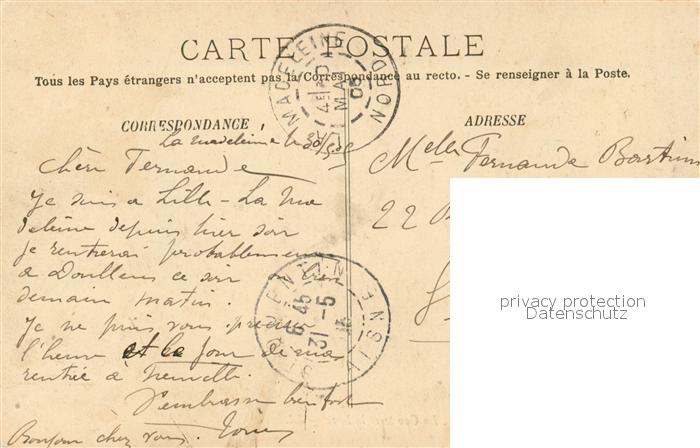 CARTE POSTALE
Tous les Pays étrangers n'acceptent pas la Correspondance au recto. - Se renseigner à la Poste.
CORRESPONDANCE
ADRESSE
La Madeleine le 30/5
Chère Fernande
Je suis a Lille - La Ma
deleine depuis hier soir
je rentrerai probablement
a Doullens ce soir ou bien
demain matin.
Je ne puis vous prédire
l'heure et le jour de ma
rentrée à
J'embrasse bien fort
Bonjour chez vous.
Melle Fernande
22
MADELEINE
NORD
MAI
05
6 45
31 - 5
privacy protection
Datenschutz